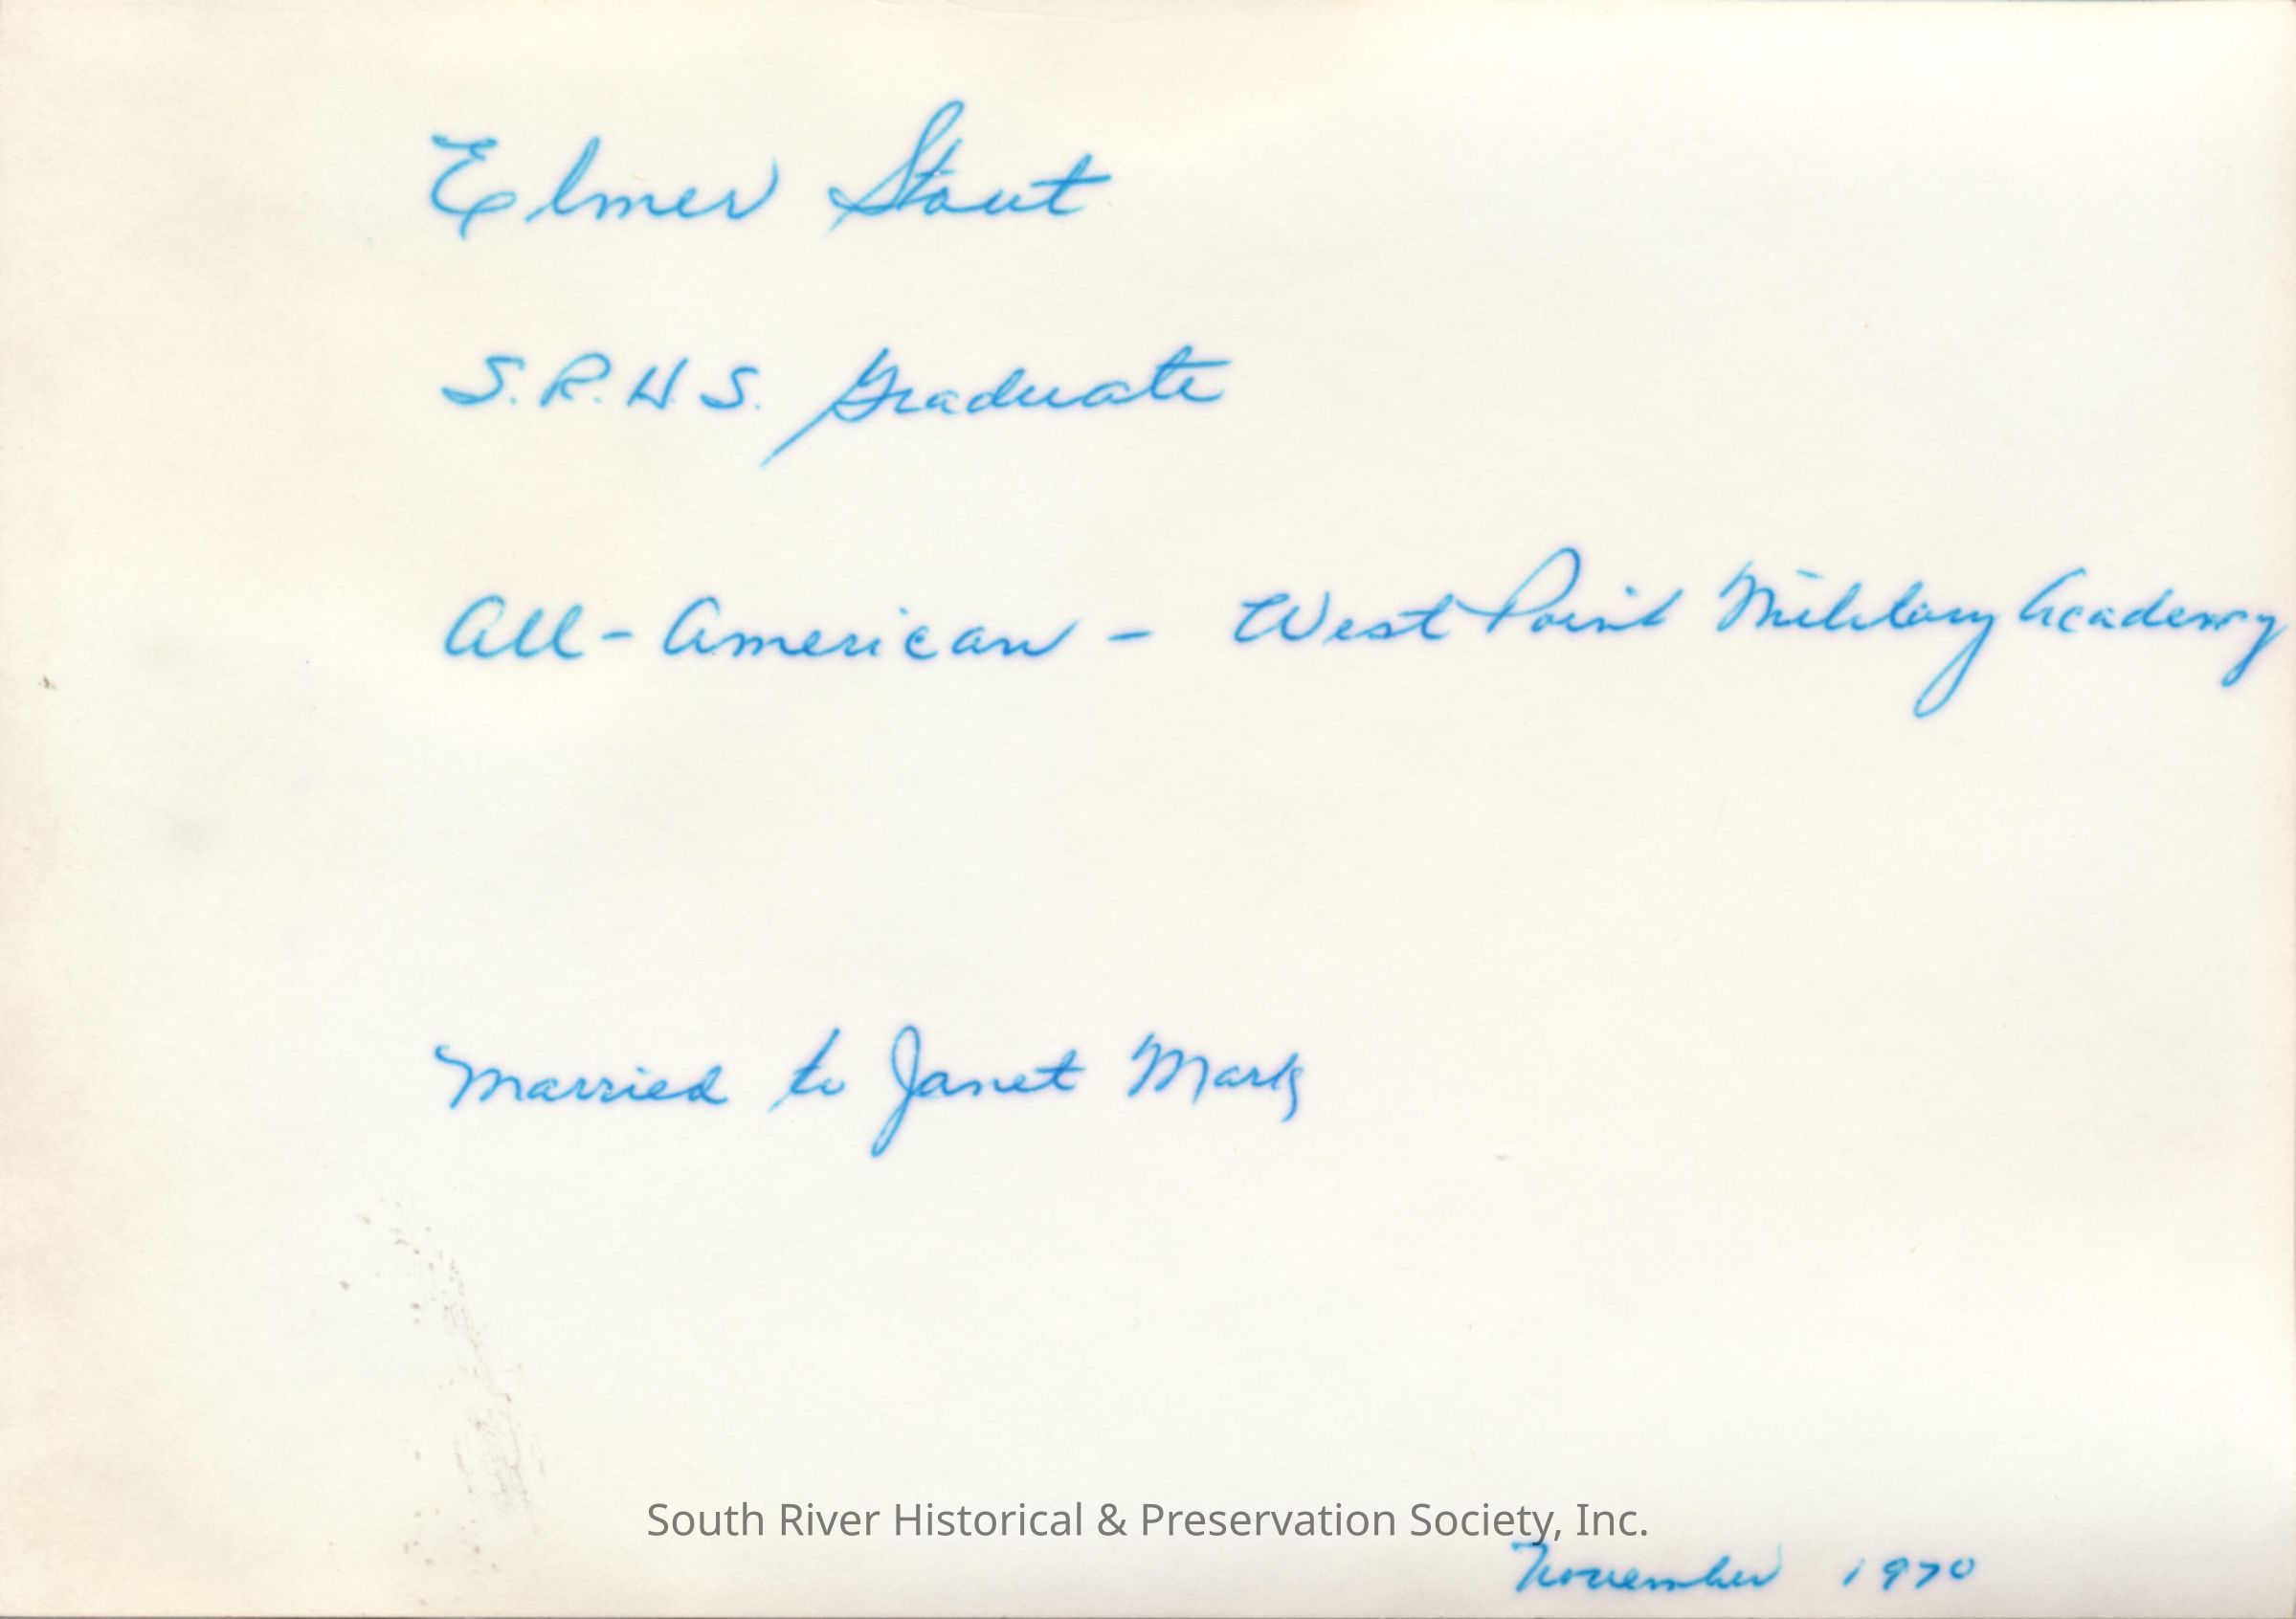 Elmer Stout
S.R.H.S. Graduate
All-American - West Point Military Academy
Married to Janet Mark
South River Historical & Preservation Society, Inc.
November 1970